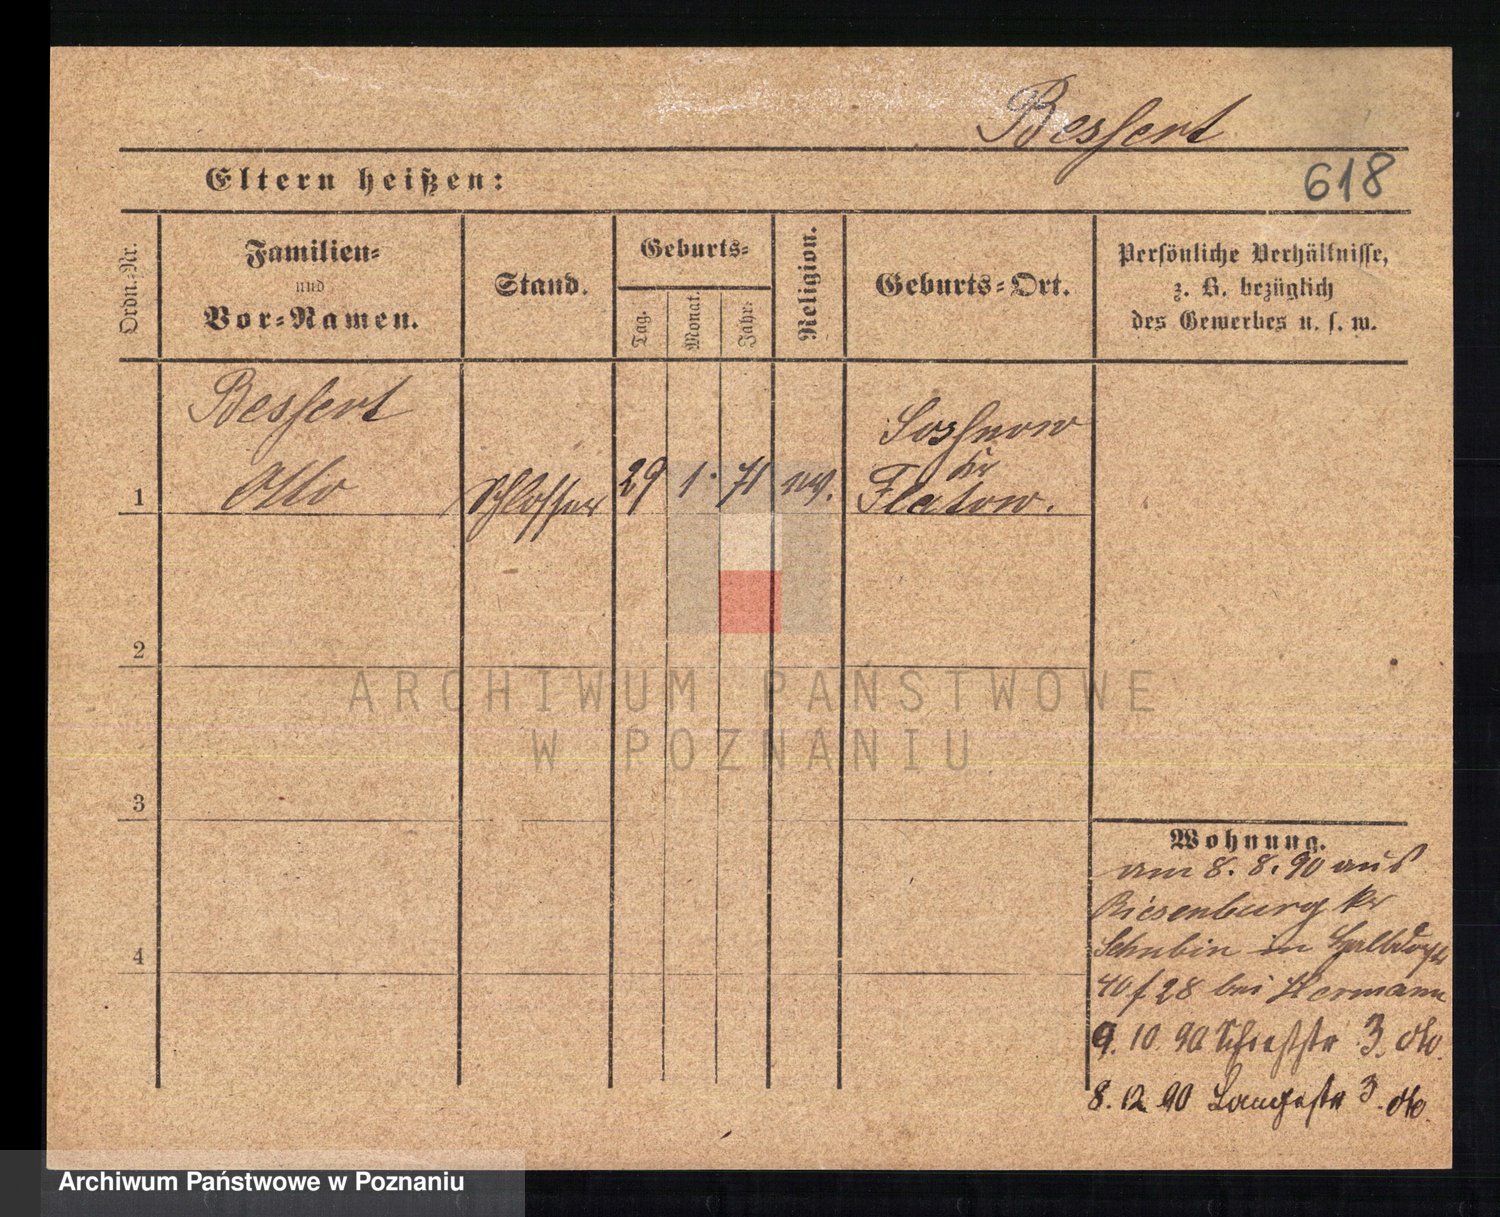 Bessert
Eltern heißen:
618
Ordn.-Nr.
Familien-
und
Vor-Namen.
Stand.
Geburts-
Tag.
Monat.
Jahr.
Religion.
Geburts-Ort.
Persönliche Verhältnisse,
z. B. bezüglich
des Gewerbes u. s. w.
Bessert
Otto
1
Schlosser
29 1. 71
ev.
Sossnow
Kr
Flatow.
2
ARCHIWUM PAŃSTWOWE
W POZNANIU
3
Wohnung.
am 8. 8. 90 aus
Riesenburg Kr
Schubin in Halbdorfstr
28 bei Hermann
9. 10. 90 Schießstr 3. do.
8. 12. 90 Langestr 3. do.
4
Archiwum Państwowe w Poznaniu